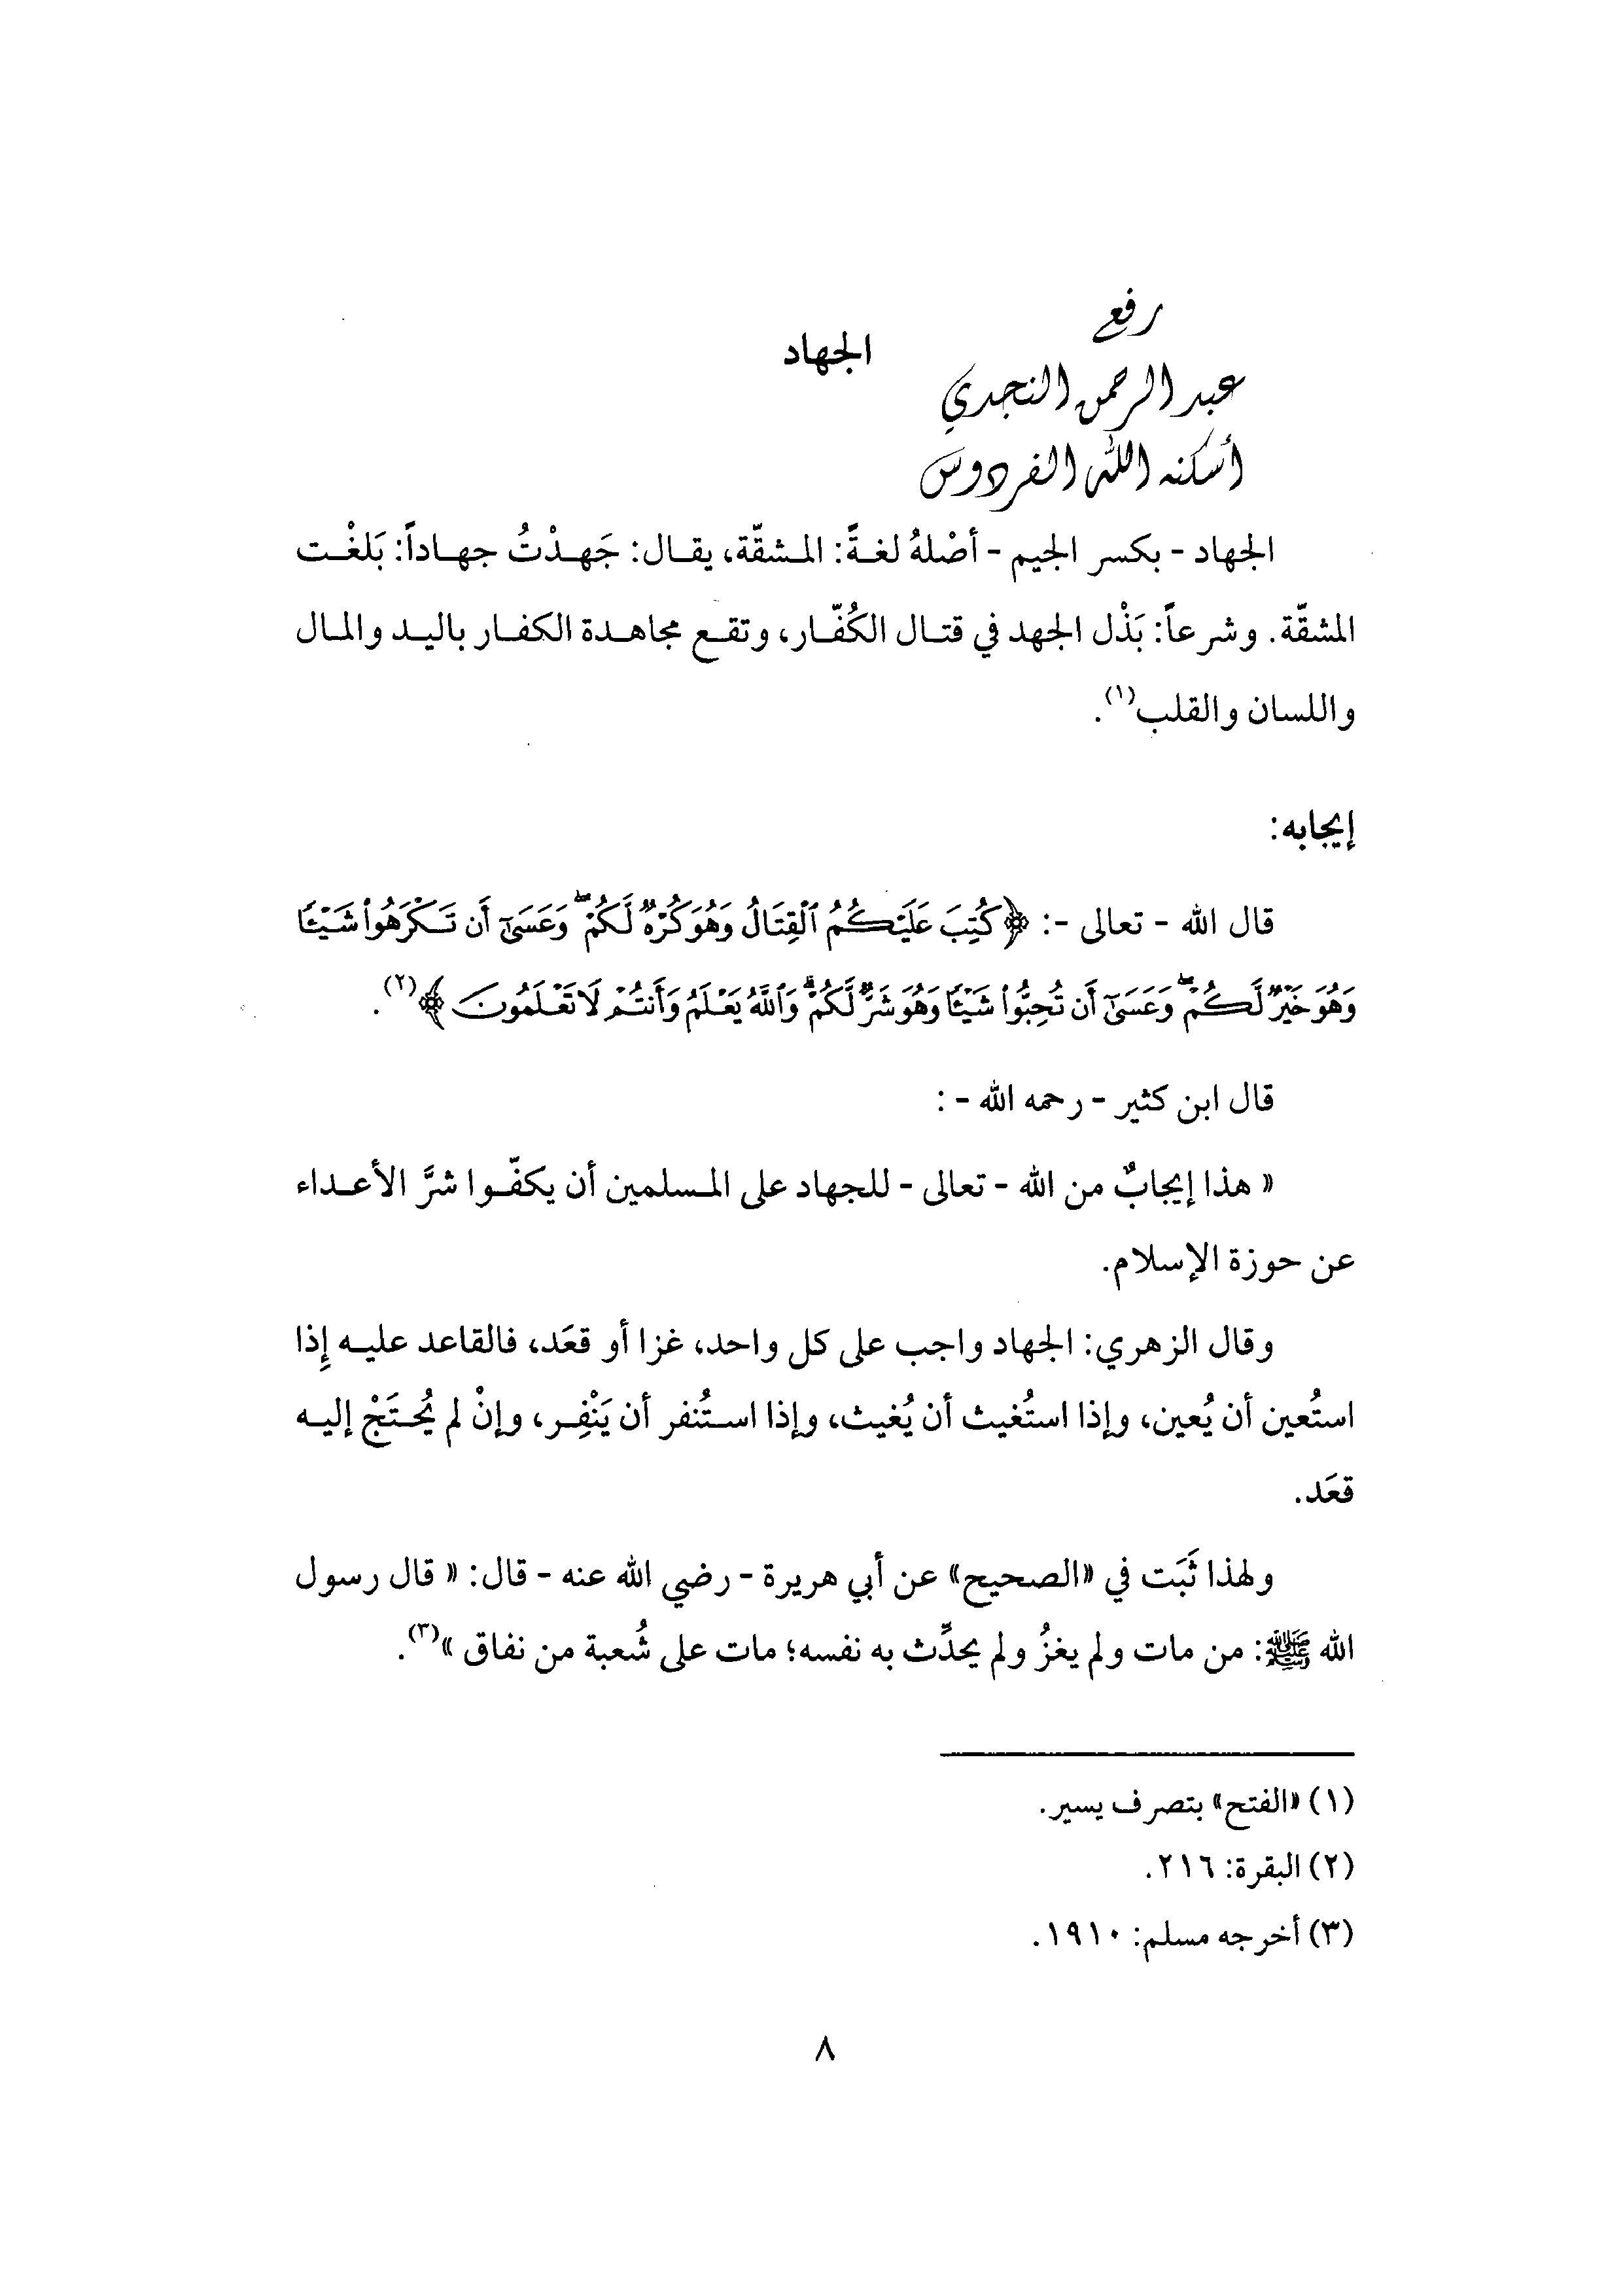 رفع
الجهاد
عبد الرحمن النجدي
أسكنه الله الفردوس
الجهاد - بكسر الجيم - أصْلهُ لغةً: المشقّة، يقال: جَهدْتُ جهاداً: بَلغْت
المشقّة. وشرعاً: بَذْل الجهد في قتال الكُفّار، وتقع مجاهدة الكفار باليد والمال
واللسان والقلب(١).
إيجابه:
قال الله - تعالى -: ﴿كُتِبَ عَلَيْكُمُ ٱلْقِتَالُ وَهُوَ كُرْهٌ لَّكُمْ ۖ وَعَسَىٰٓ أَن تَكْرَهُوا۟ شَيْـًٔا
وَهُوَ خَيْرٌ لَّكُمْ ۖ وَعَسَىٰٓ أَن تُحِبُّوا۟ شَيْـًٔا وَهُوَ شَرٌّ لَّكُمْ ۗ وَٱللَّهُ يَعْلَمُ وَأَنتُمْ لَا تَعْلَمُونَ﴾(٢).
قال ابن كثير - رحمه الله - :
« هذا إيجابٌ من الله - تعالى - للجهاد على المسلمين أن يكفّوا شرَّ الأعداء
عن حوزة الإسلام.
وقال الزهري: الجهاد واجب على كل واحد، غزا أو قعَد، فالقاعد عليه إِذا
استُعين أن يُعين، وإذا استُغيث أن يُغيث، وإذا استُنفر أن يَنْفِر، وإنْ لم يُحتَجْ إليه
قعَد.
ولهذا ثَبَت في «الصحيح» عن أبي هريرة - رضي الله عنه - قال: « قال رسول
الله ﷺ: من مات ولم يغزُ ولم يحدِّث به نفسه؛ مات على شُعبة من نفاق »(٣).
(١) «الفتح» بتصرف يسير.
(٢) البقرة: ٢١٦.
(٣) أخرجه مسلم: ١٩١٠.
٨